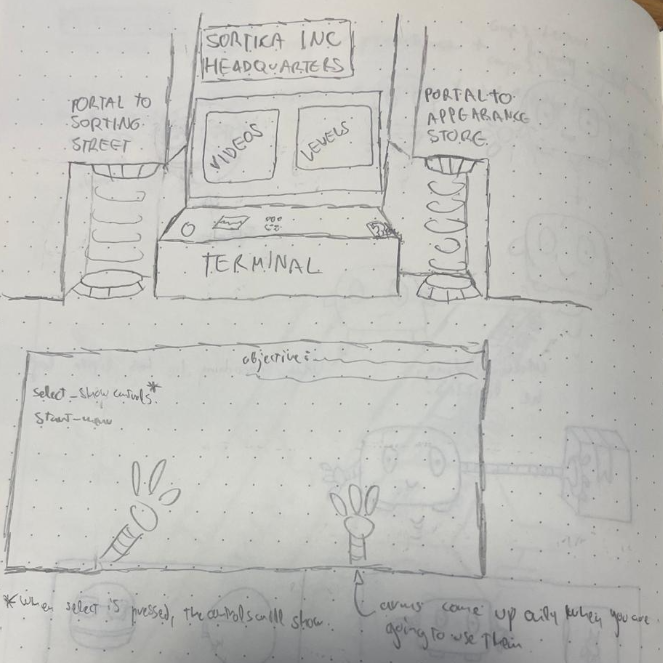 SORTIKA INC
HEADQUARTERS
PORTAL TO
SORTING
STREET
PORTAL TO
APPEARANCE
STORE
VIDEOS
LEVELS
TERMINAL
objective:
select - show controls*
start - menu
*when select is pressed, the controls will show.
arms come up only when you are
going to use them